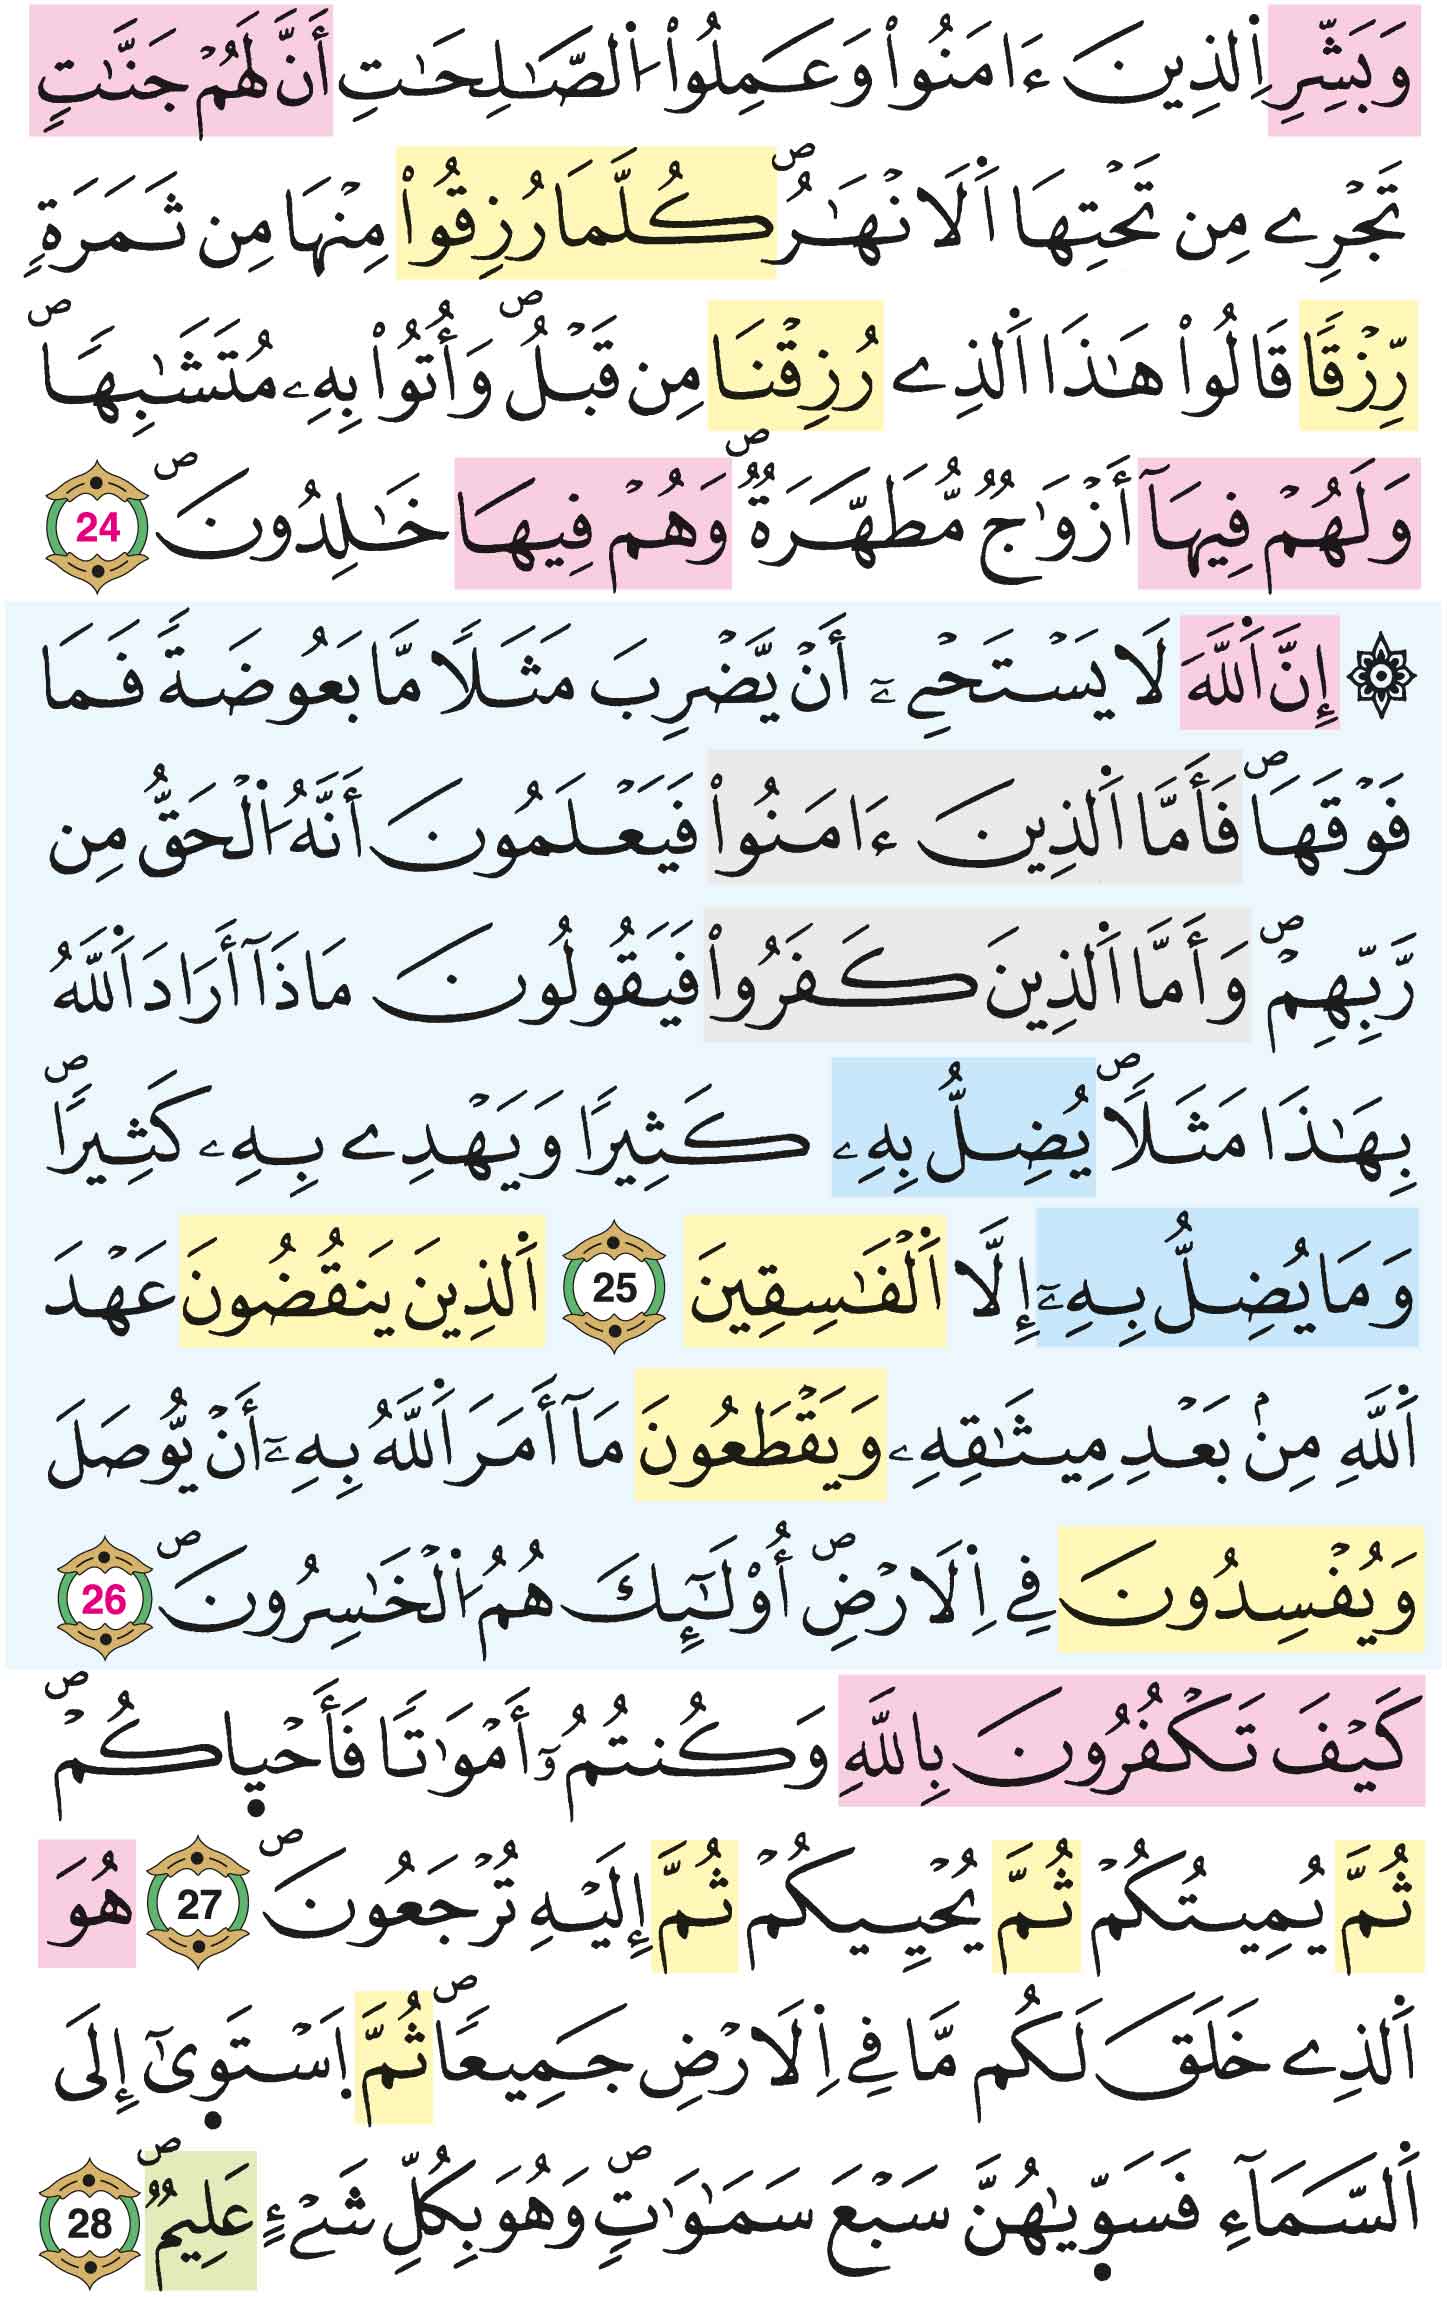 وَبَشِّرِ اِ۬لذِينَ ءَامَنُواْ وَعَمِلُواْ اُ۬لصَّٰلِحَٰتِ أَنَّ لَهُمْ جَنَّٰتٖ
تَجْرِے مِن تَحْتِهَا اَ۬لَانْهَٰرُۖ كُلَّمَا رُزِقُواْ مِنْهَا مِن ثَمَرَةٖ
رِّزْقاٗ قَالُواْ هَٰذَا اَ۬لذِے رُزِقْنَا مِن قَبْلُۖ وَأُتُواْ بِهِۦ مُتَشَٰبِهاٗۖ
وَلَهُمْ فِيهَآ أَزْوَٰجٞ مُّطَهَّرَةٞۖ وَهُمْ فِيهَا خَٰلِدُونَۖ 24
۞ إِنَّ اَ۬للَّهَ لَا يَسْتَحْيِۦٓ أَنْ يَّضْرِبَ مَثَلاٗ مَّا بَعُوضَةٗ فَمَا
فَوْقَهَاۖ فَأَمَّا اَ۬لذِينَ ءَامَنُواْ فَيَعْلَمُونَ أَنَّهُ اُ۬لْحَقُّ مِن
رَّبِّهِمْۖ وَأَمَّا اَ۬لذِينَ كَفَرُواْ فَيَقُولُونَ مَاذَآ أَرَادَ اَ۬للَّهُ
بِهَٰذَا مَثَلاٗۖ يُضِلُّ بِهِۦ كَثِيراٗ وَيَهْدِے بِهِۦ كَثِيراٗۖ
وَمَا يُضِلُّ بِهِۦٓ إِلَّا اَ۬لْفَٰسِقِينَ 25 اَ۬لذِينَ يَنقُضُونَ عَهْدَ
اَ۬للَّهِ مِنۢ بَعْدِ مِيثَٰقِهِۦ وَيَقْطَعُونَ مَآ أَمَرَ اَ۬للَّهُ بِهِۦٓ أَنْ يُّوصَلَ
وَيُفْسِدُونَ فِي اِ۬لَارْضِۖ أُوْلَٰٓئِكَ هُمُ اُ۬لْخَٰسِرُونَۖ 26
كَيْفَ تَكْفُرُونَ بِاللَّهِ وَكُنتُمُۥٓ أَمْوَٰتاٗ فَأَحْيٜاكُمْۖ
ثُمَّ يُمِيتُكُمْ ثُمَّ يُحْيِيكُمْ ثُمَّ إِلَيْهِ تُرْجَعُونَۖ 27 هُوَ
اَ۬لذِے خَلَقَ لَكُم مَّا فِي اِ۬لَارْضِ جَمِيعاٗۖ ثُمَّ اَ۪سْتَوٜىٰٓ إِلَى
اَ۬لسَّمَآءِ فَسَوّٜىٰهُنَّ سَبْعَ سَمَٰوَٰتٖۖ وَهُوَ بِكُلِّ شَےْءٍ عَلِيمٞۖ 28